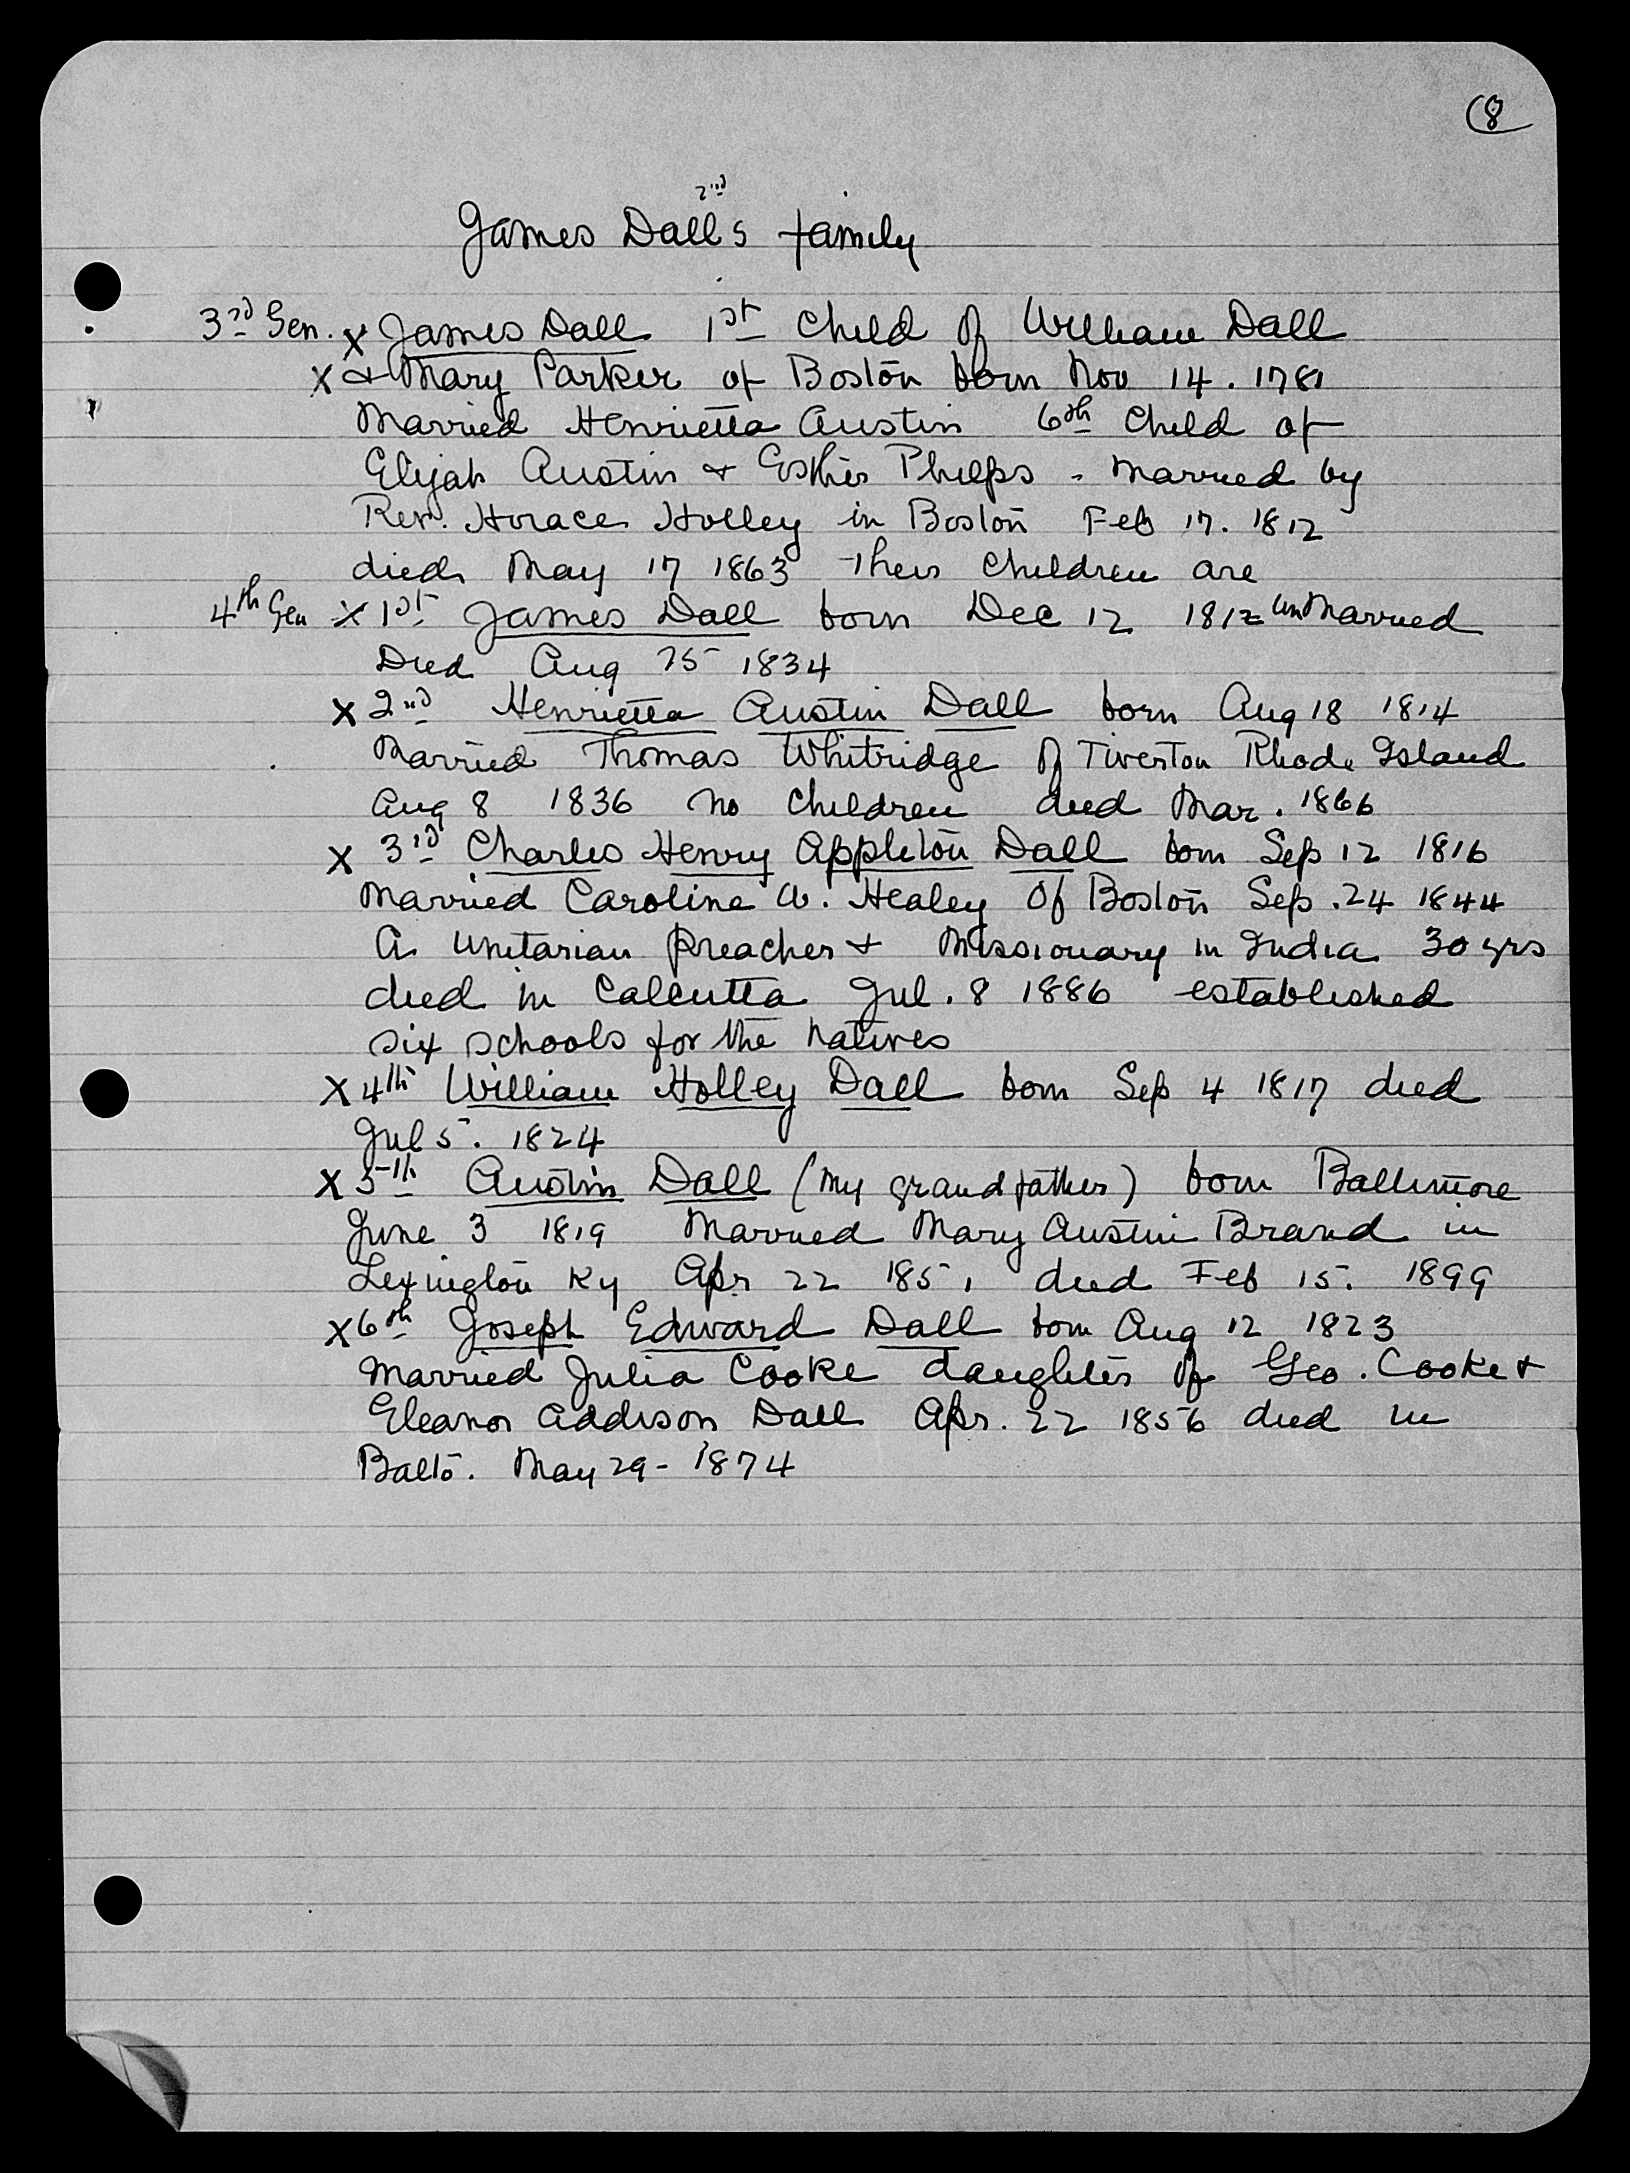 8
2nd
James Dall's family
3rd Gen. x James Dall 1st Child of William Dall
x & Mary Parker of Boston born Nov 14. 1781
Married Henrietta Austin 6th Child of
Elijah Austin & Esther Phelps - Married by
Rev. Horace Holley in Boston Feb 17. 1812
died May 17 1863 Their Children are
4th Gen x 1st James Dall born Dec 12 1812 unMarried
Died Aug 25 1834
x 2nd Henrietta Austin Dall born Aug 18 1814
Married Thomas Whitridge of Tiverton Rhode Island
Aug 8 1836 No Children died Mar. 1866
x 3rd Charles Henry Appleton Dall born Sep 12 1816
Married Caroline W. Healey Of Boston Sep. 24 1844
A Unitarian Preacher & Missionary in India 30 yrs
died in Calcutta Jul. 8 1886 established
six schools for the natives
x 4th William Holley Dall born Sep 4 1817 died
Jul 5. 1824
x 5th Austin Dall (my grandfather) born Baltimore
June 3 1819 Married Mary Austin Brand in
Lexington Ky Apr 22 1851 died Feb 15. 1899
x 6th Joseph Edward Dall born Aug 12 1823
Married Julia Cooke daughter of Geo. Cooke &
Eleanor Addison Dall Apr. 22 1856 died in
Balto. May 29 - 1874